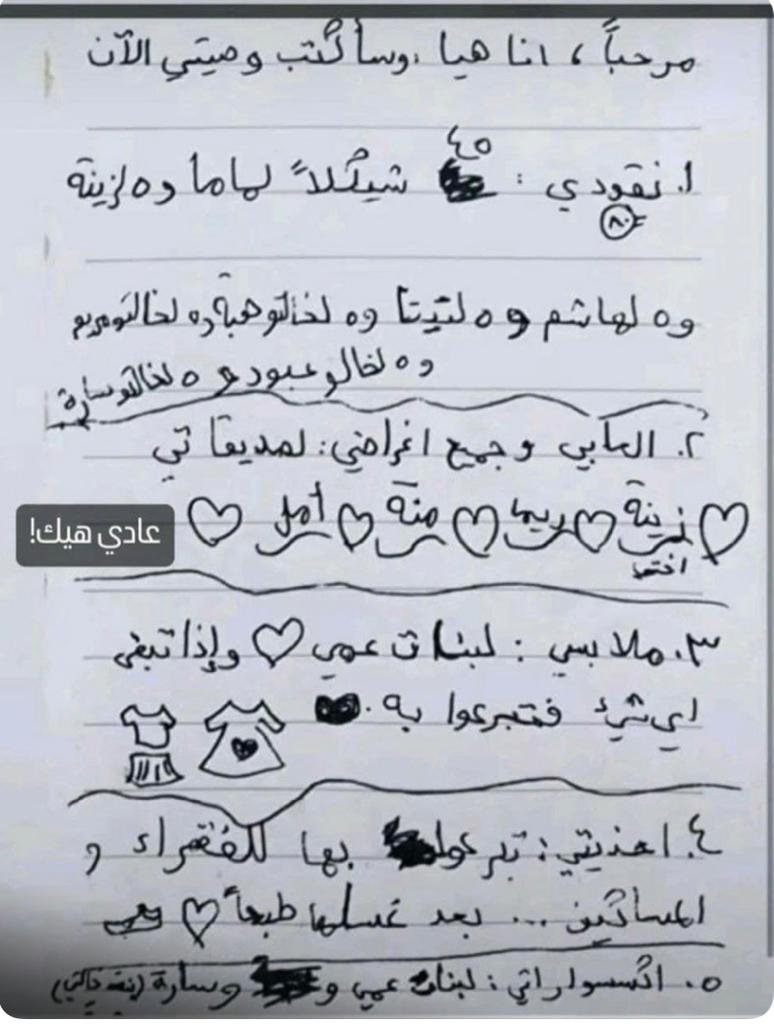 مرحباً، انا هيا، وسأكتب وصيتي الآن
٤٥
١. نقودي : شيكلاً لماما و ٥ لزينة
٨٠
و ٥ لهاشم و ٥ لتيتا و ٥ لخالتو هبة و ٥ لخالتو مريم
و ٥ لخالو عبود و ٥ لخالتو سارة
٢. العابي و جميع اغراضي: لصديقاتي
زينة ريما منة أمل
اختي
عادي هيك!
٣. ملابسي : لبنات عمي وإذا تبقى
اي شيء فتبرعوا به.
٤. احذيتي: تبرعوا بها للفقراء و
المساكين ... بعد غسلها طبعاً
٥. اكسسواراتي: لبنات عمي و وسارة